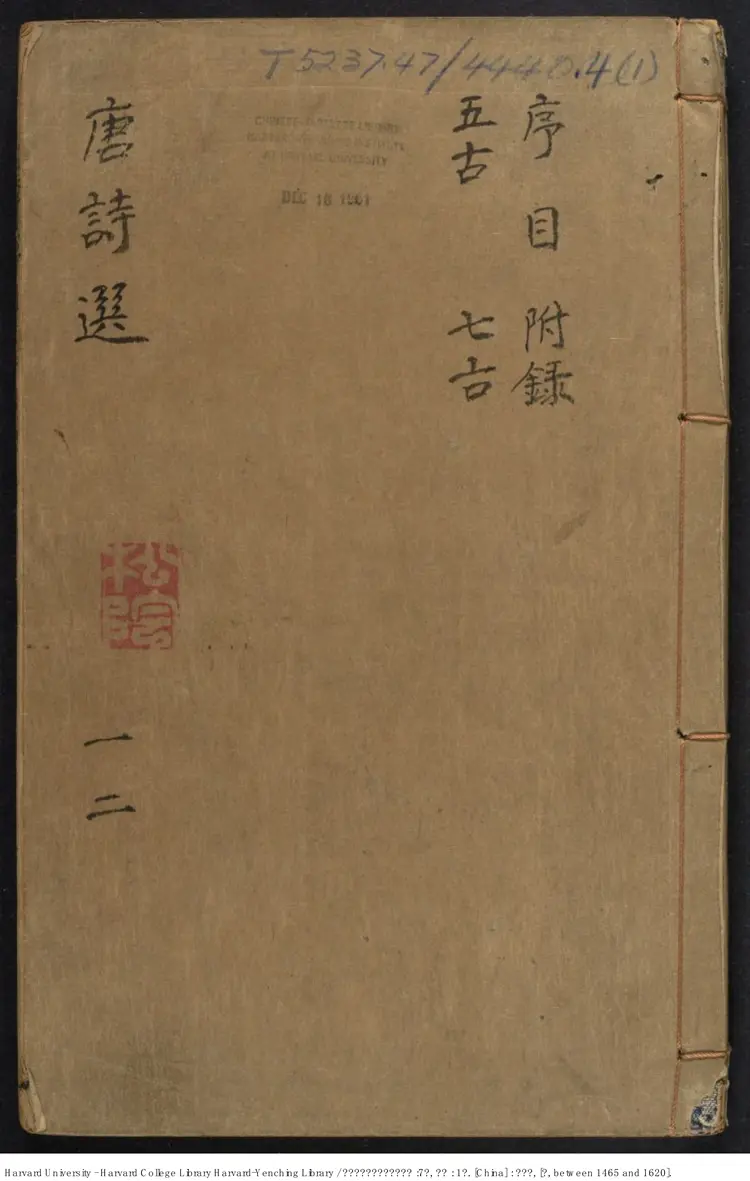 T5237.47/4440.4(1)
CHINESE-JAPANESE LIBRARY
HARVARD-YENCHING INSTITUTE
AT HARVARD UNIVERSITY
DEC 18 1961
序目 附録
五古 七古
唐詩選
松院
一二
Harvard University - Harvard College Library Harvard-Yenching Library / ???????????? : 7?, ?? : 1?. [China] : ???, [?, between 1465 and 1620].